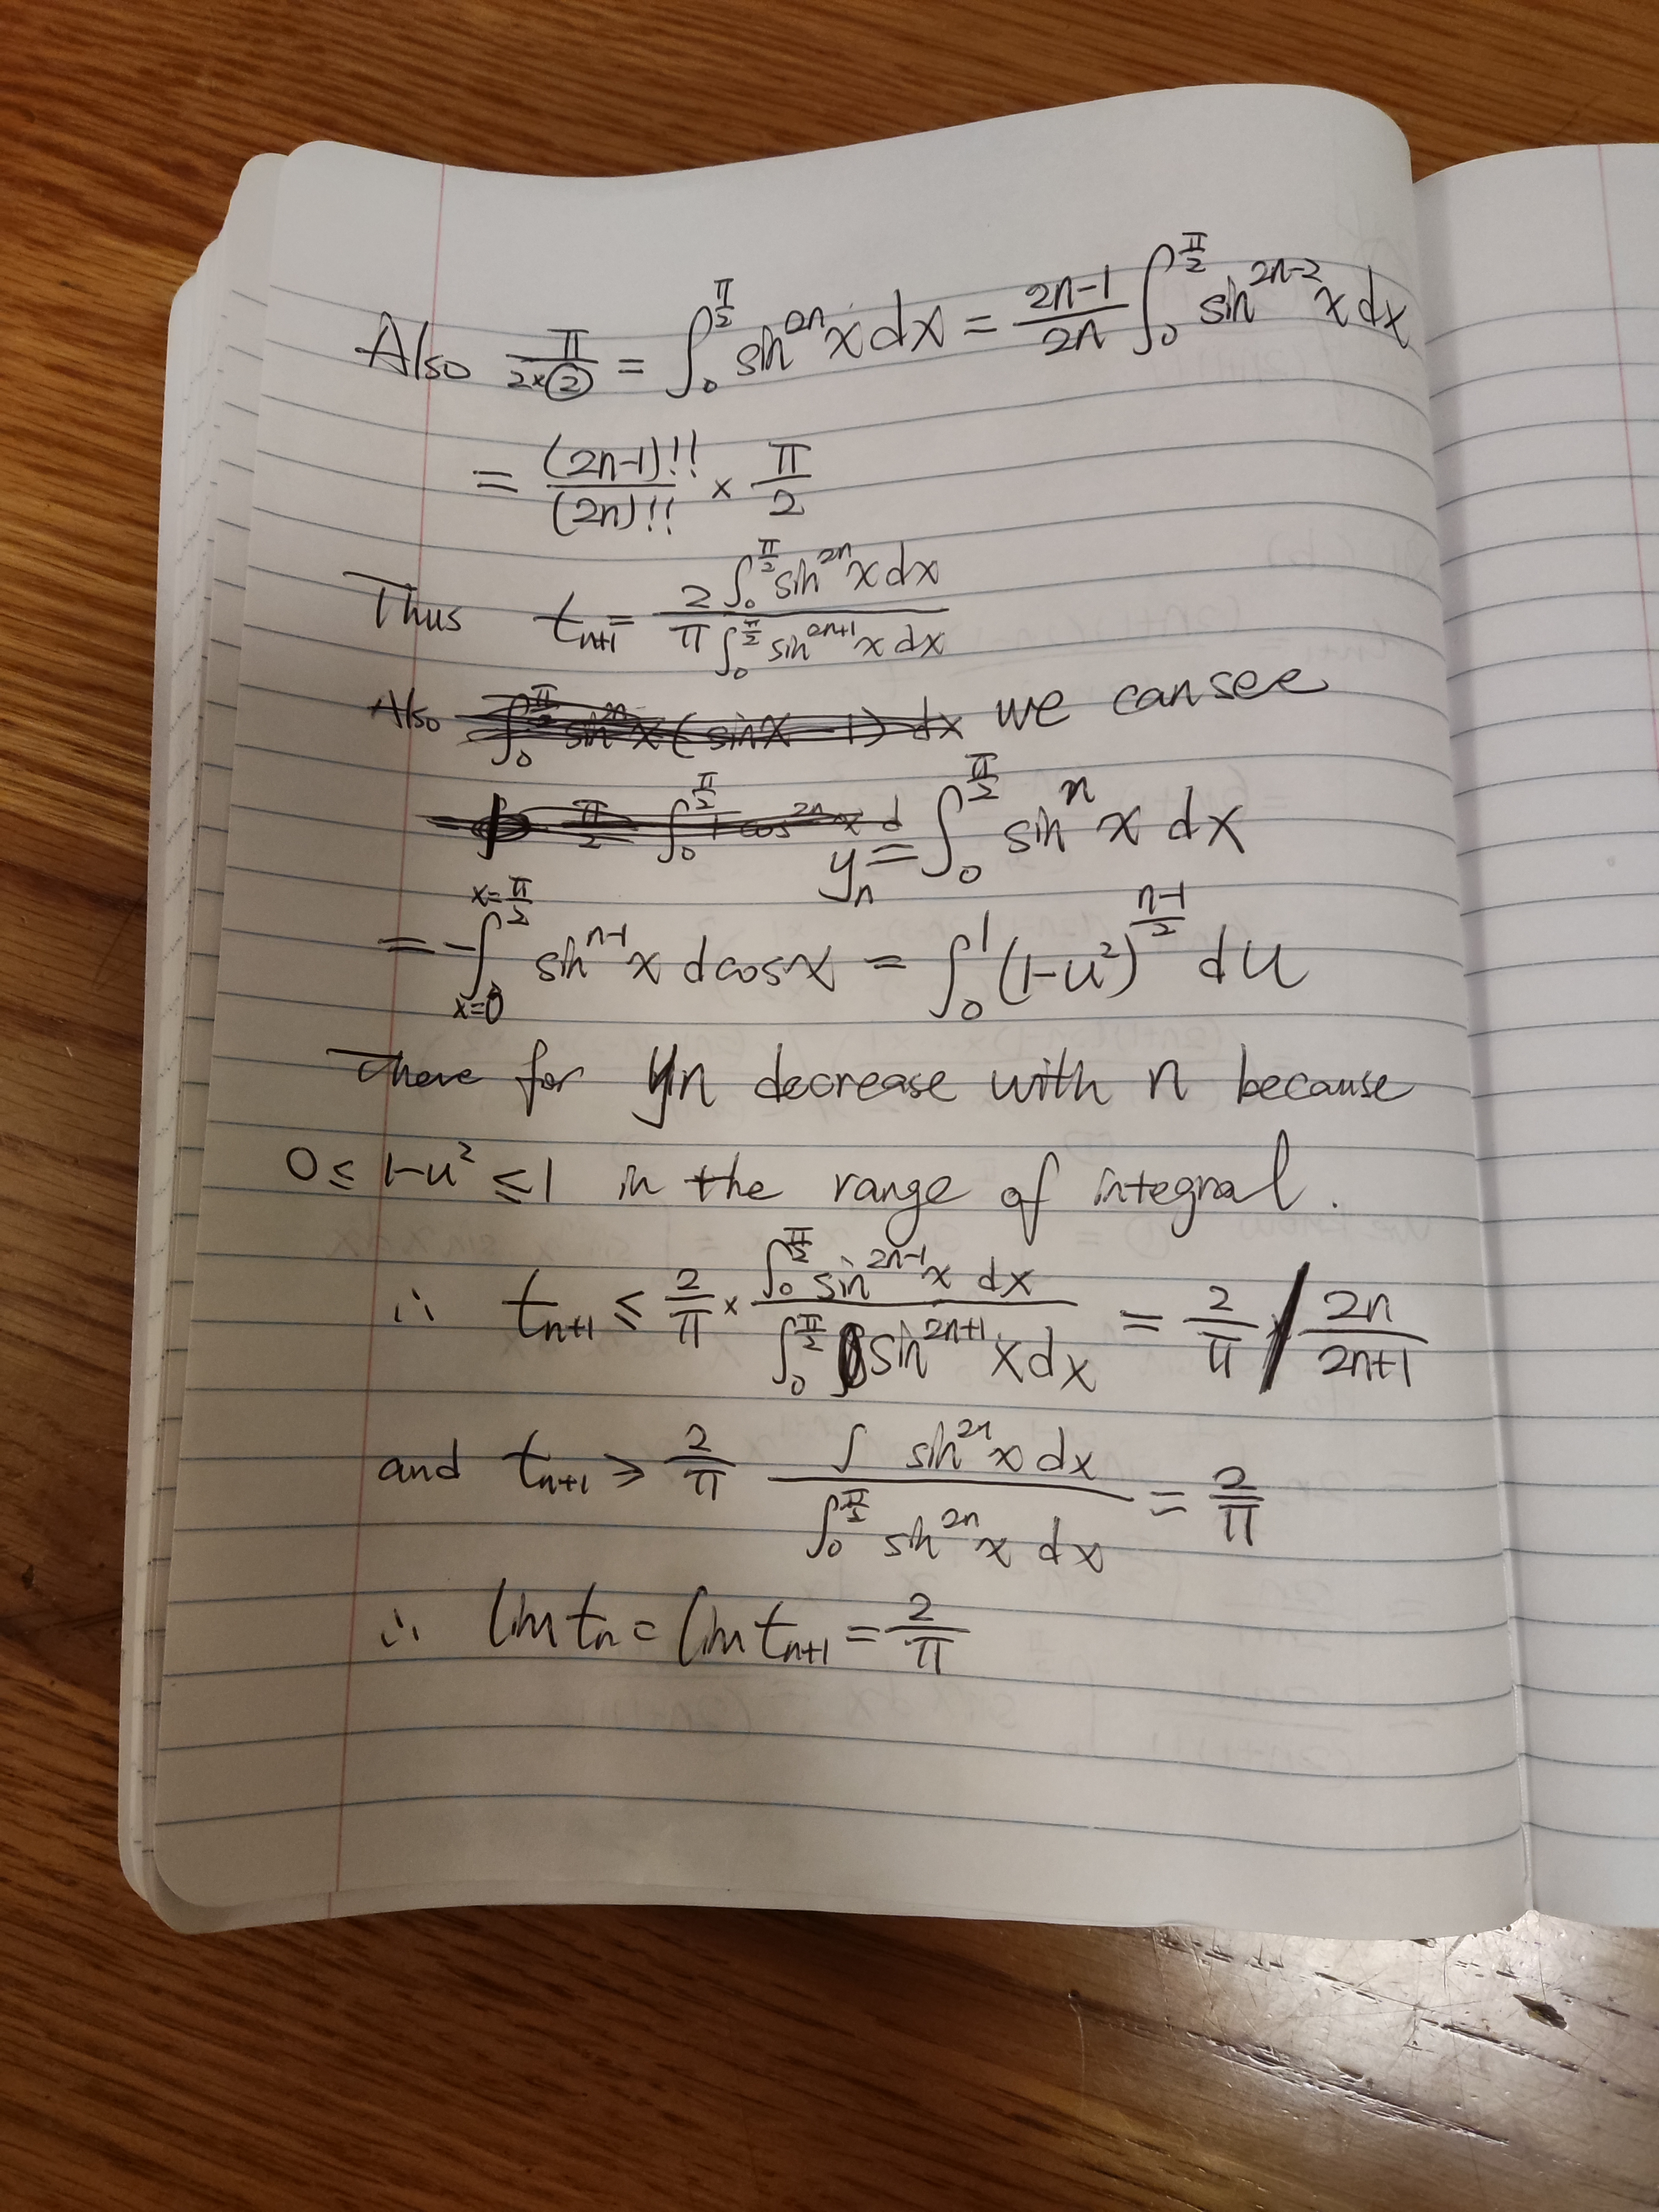 Also π/(2×②) = ∫₀^(π/2) sin^(2n) x dx = (2n-1)/(2n) ∫₀^(π/2) sin^(2n-2) x dx
= (2n-1)!!/(2n)!! × π/2
Thus t_(n+1) = (2 ∫₀^(π/2) sin^(2n) x dx)/(π ∫₀^(π/2) sin^(2n+1) x dx)
Also we can see
y_n = ∫₀^(π/2) sin^n x dx
= -∫_(x=0)^(x=π/2) sin^(n-1) x dcosx = ∫₀^1 (1-u²)^((n-1)/2) du
There for yn decrease with n because
0 ≤ 1-u² ≤ 1 in the range of integral.
∴ t_(n+1) ≤ 2/π × (∫₀^(π/2) sin^(2n-1) x dx)/(∫₀^(π/2) sin^(2n+1) x dx) = 2/π / (2n)/(2n+1)
and t_(n+1) ≥ 2/π (∫ sin^(2n) x dx)/(∫₀^(π/2) sin^(2n) x dx) = 2/π
∴ lim t_n = lim t_(n+1) = 2/π